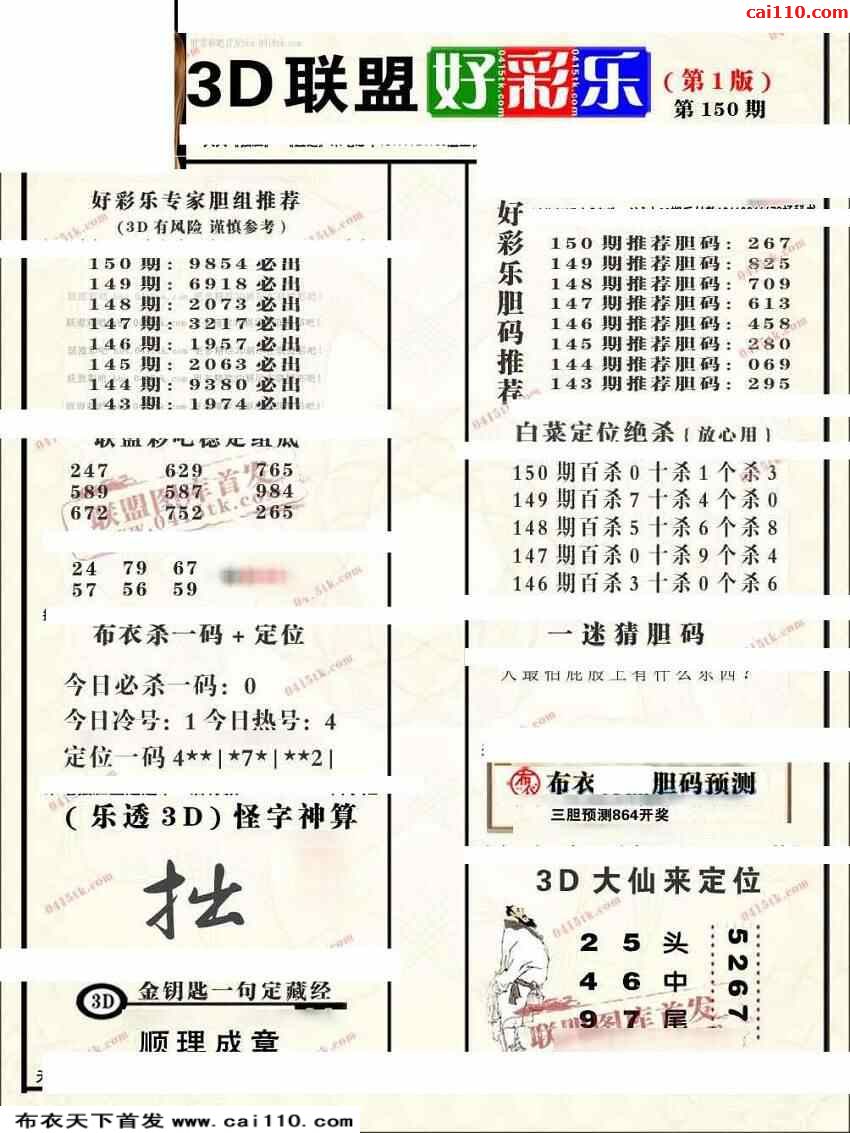 cai110.com
3D联盟好彩乐(第1版)
第150期
好彩乐专家胆组推荐
(3D有风险 谨慎参考)
150期: 9854必出
149期: 6918必出
148期: 2073必出
147期: 3217必出
146期: 1957必出
145期: 2063必出
144期: 9380必出
143期: 1974必出
联盟彩吧稳定组底
247 629 765
589 587 984
672 752 265
联盟图库首发
www.0415tk.com
24 79 67
57 56 59
布衣杀一码+定位
今日必杀一码: 0
今日冷号: 1 今日热号: 4
定位一码 4**|*7*|**2|
(乐透3D)怪字神算
拙
3D 金钥匙一句定藏经
顺理成章
好彩乐胆码推荐
150期推荐胆码: 267
149期推荐胆码: 825
148期推荐胆码: 709
147期推荐胆码: 613
146期推荐胆码: 458
145期推荐胆码: 280
144期推荐胆码: 069
143期推荐胆码: 295
白菜定位绝杀{放心用}
150期百杀0十杀1个杀3
149期百杀7十杀4个杀0
148期百杀5十杀6个杀8
147期百杀0十杀9个杀4
146期百杀3十杀0个杀6
一迷猜胆码
人最怕屁股上有什么东西?
布衣 胆码预测
三胆预测864开奖
3D大仙来定位
2 5 头
4 6 中
9 7 尾
5267
联盟图库首发
布衣天下首发 www.cai110.com